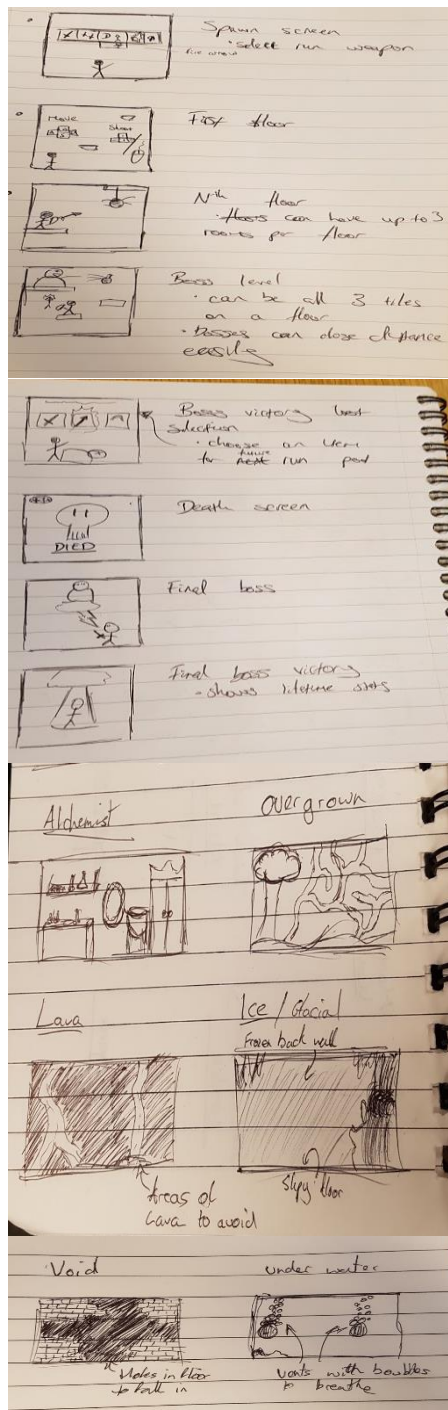 Spawn screen
• select run weapon
Move
Shoot
First floor
Nth floor
can have up to 3
rooms per floor
Boss level
• can be all 3 tiles
on a floor
• Bosses can close distance
easily
Boss victory loot
selection
• choose an item
for future run pool
Death screen
DIED
Final boss
Final boss victory
• shows lifetime stats
Alchemist
Overgrown
Lava
Ice / Glacial
Frozen back wall
Slipy floor
Areas of
Lava to avoid
Void
under water
Holes in floor
to fall in
vents with boubles
to breathe